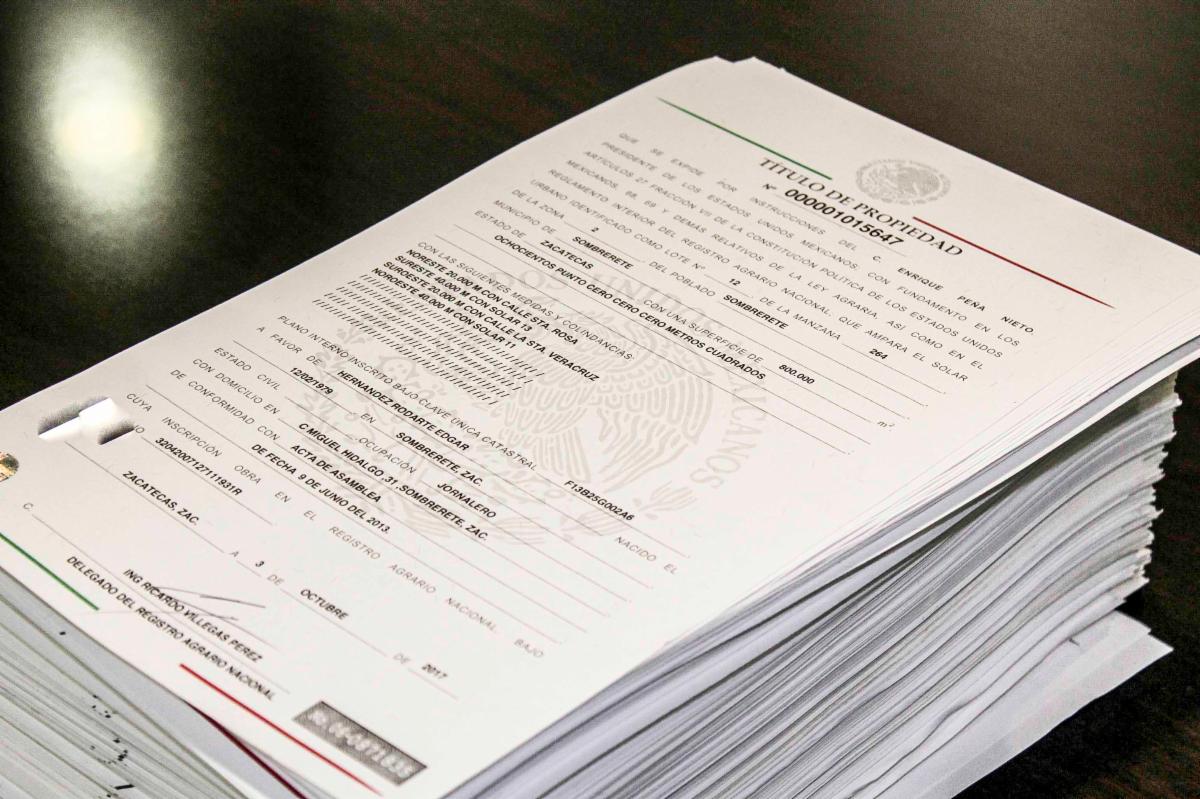 TÍTULO DE PROPIEDAD
N° 000001015647
QUE SE EXPIDE POR INSTRUCCIONES DEL C. ENRIQUE PEÑA NIETO
PRESIDENTE DE LOS ESTADOS UNIDOS MEXICANOS, CON FUNDAMENTO EN LOS
ARTÍCULOS 27 FRACCIÓN VII DE LA CONSTITUCIÓN POLÍTICA DE LOS ESTADOS UNIDOS
MEXICANOS, 68, 69 Y DEMÁS RELATIVOS DE LA LEY AGRARIA, ASÍ COMO EN EL
REGLAMENTO INTERIOR DEL REGISTRO AGRARIO NACIONAL, QUE AMPARA EL SOLAR
URBANO IDENTIFICADO COMO LOTE N° 12 DE LA MANZANA 264
DE LA ZONA 2 DEL POBLADO SOMBRERETE
MUNICIPIO DE SOMBRERETE
ESTADO DE ZACATECAS CON UNA SUPERFICIE DE 800.000 m²
OCHOCIENTOS PUNTO CERO CERO CERO METROS CUADRADOS
CON LAS SIGUIENTES MEDIDAS Y COLINDANCIAS:
NORESTE 20.000 M CON CALLE STA. ROSA
SURESTE 40.000 M CON SOLAR 13
SUROESTE 20.000 M CON CALLE LA STA. VERACRUZ
NOROESTE 40.000 M CON SOLAR 11
PLANO INTERNO INSCRITO BAJO CLAVE ÚNICA CATASTRAL F13B25G002A6
A FAVOR DE HERNANDEZ RODARTE EDGAR NACIDO EL
12/02/1979 EN SOMBRERETE, ZAC.
ESTADO CIVIL OCUPACIÓN JORNALERO
CON DOMICILIO EN C.MIGUEL HIDALGO ,31 ,SOMBRERETE, ZAC.
DE CONFORMIDAD CON ACTA DE ASAMBLEA
DE FECHA 9 DE JUNIO DEL 2013.
CUYA INSCRIPCIÓN OBRA EN EL REGISTRO AGRARIO NACIONAL BAJO
32042007127111931R
ZACATECAS, ZAC. A 3 DE OCTUBRE DE 2017
C.
ING RICARDO VILLEGAS PEREZ
DELEGADO DEL REGISTRO AGRARIO NACIONAL